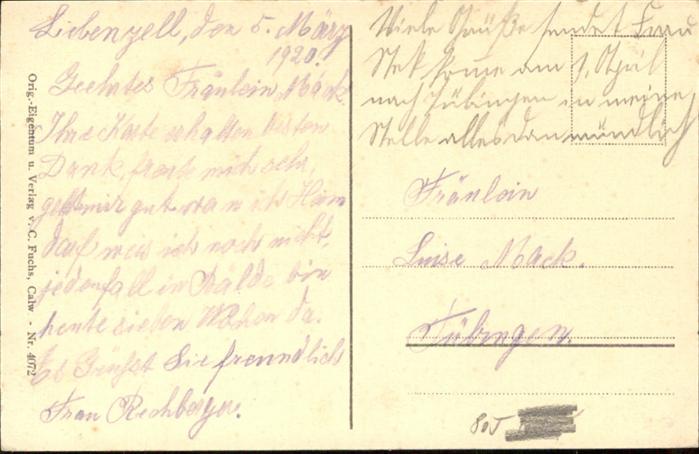 Liebenzell, den 5. März
1920.
Geehrtes Fräulein Mack
Ihre Karte erhalten besten
Dank, freute mich sehr,
geht mir gut wan ich Heim
darf weis ich noch nicht,
jedenfall in Bälde bin
heute sieben Wochen da.
Es Grüßst Sie freundlich
Frau Rechberger.
Viele Grüße sendet Frau
kome am 1. April
nach Tübingen in meine
Stelle alles dan mündlich
Fräulein
Luise Mack.
Tübingen
805
Orig.-Eigentum u. Verlag v. C. Fuchs, Calw - Nr. 4072